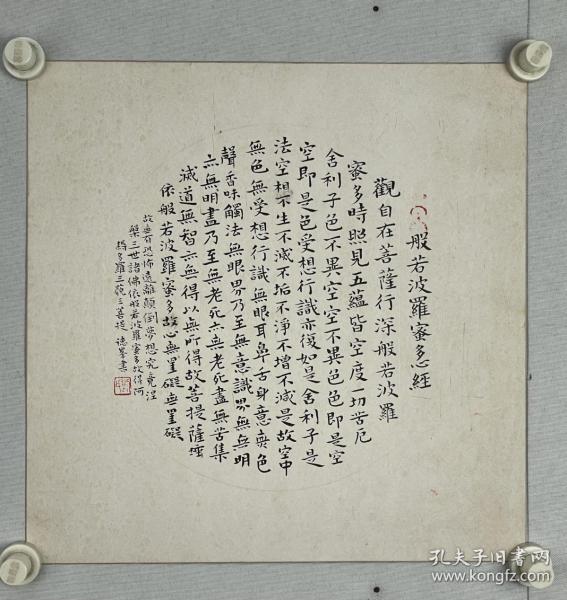 般若波羅蜜多心經
觀自在菩薩行深般若波羅
蜜多時照見五蘊皆空度一切苦厄
舍利子色不異空空不異色色即是空
空即是色受想行識亦復如是舍利子是
法空想不生不滅不垢不淨不增不減是故空中
無色無受想行識無眼耳鼻舌身意無色
聲香味觸法無眼界乃至無意識界無無明
亦無明盡乃至無老死亦無老死盡無苦集
滅道無智亦無得以無所得故菩提薩埵
依般若波羅蜜多故心無罣礙無罣礙
故無有恐怖遠離顛倒夢想究竟涅
槃三世諸佛依般若波羅蜜多故得阿
耨多羅三藐三菩提 德峯書
孔夫子旧书网
www.kongfz.com